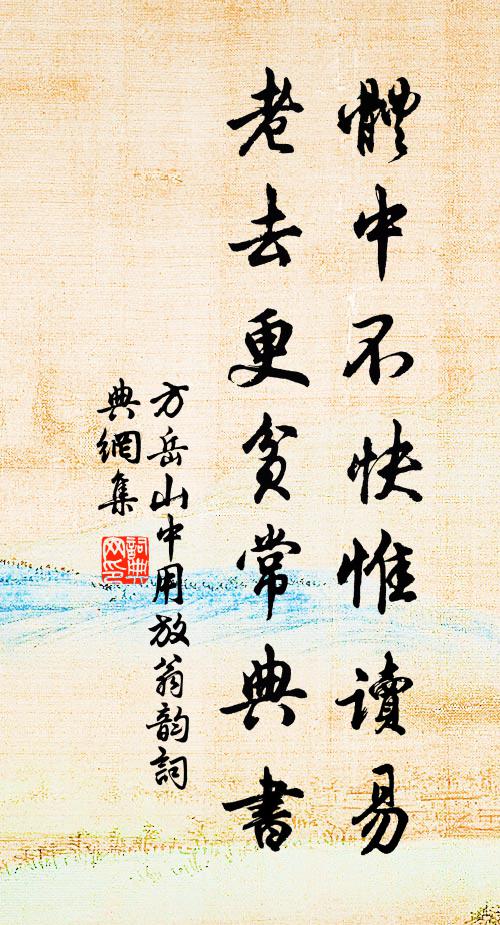 體中不快惟讀易
老去更貧常典書
方岳山中用放翁韵詞
典網集
詞典
网印